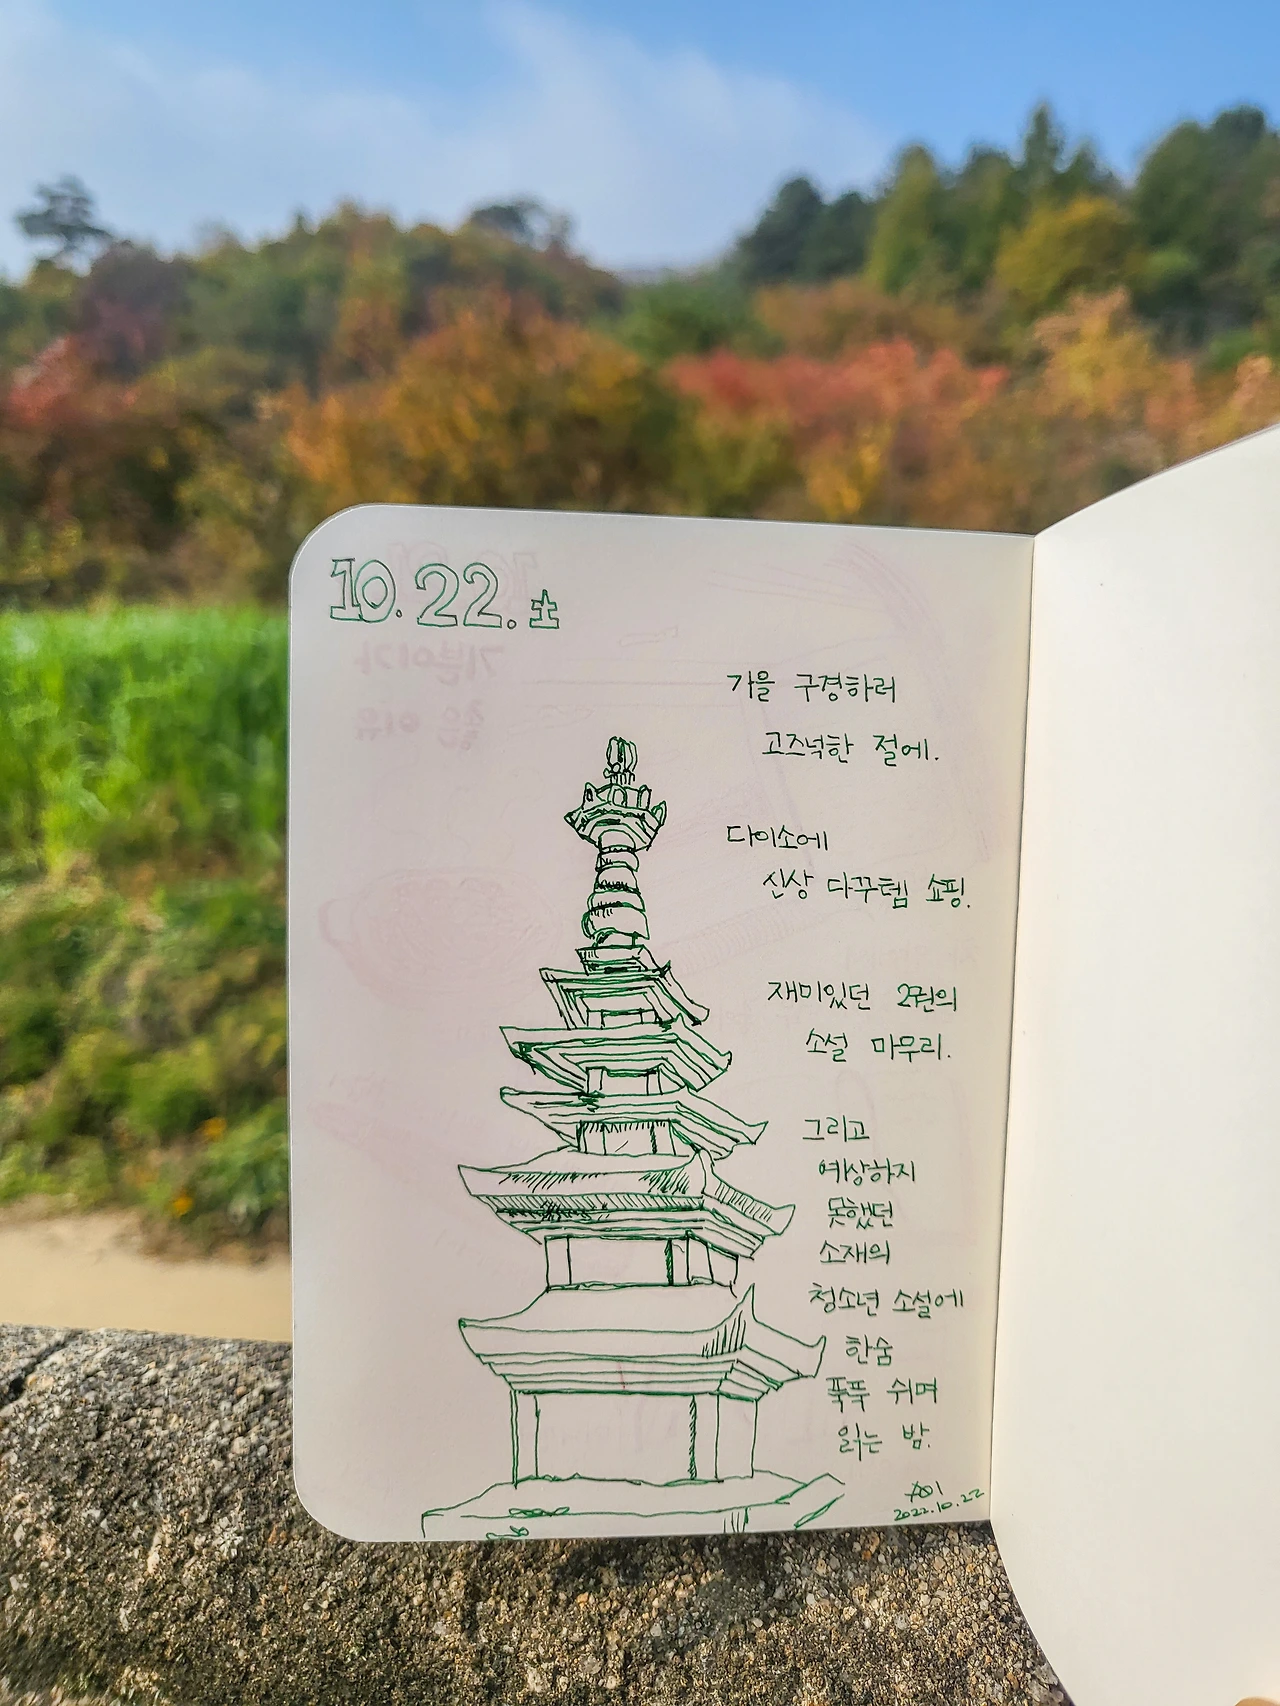 10.22.土
가을 구경하러
고즈넉한 절에.
다이소에
신상 다꾸템 쇼핑.
재미있던 2권의
소설 마무리.
그리고
예상하지
못했던
소재의
청소년 소설에
한숨
푹푹 쉬며
읽는 밤.
2022.10.22